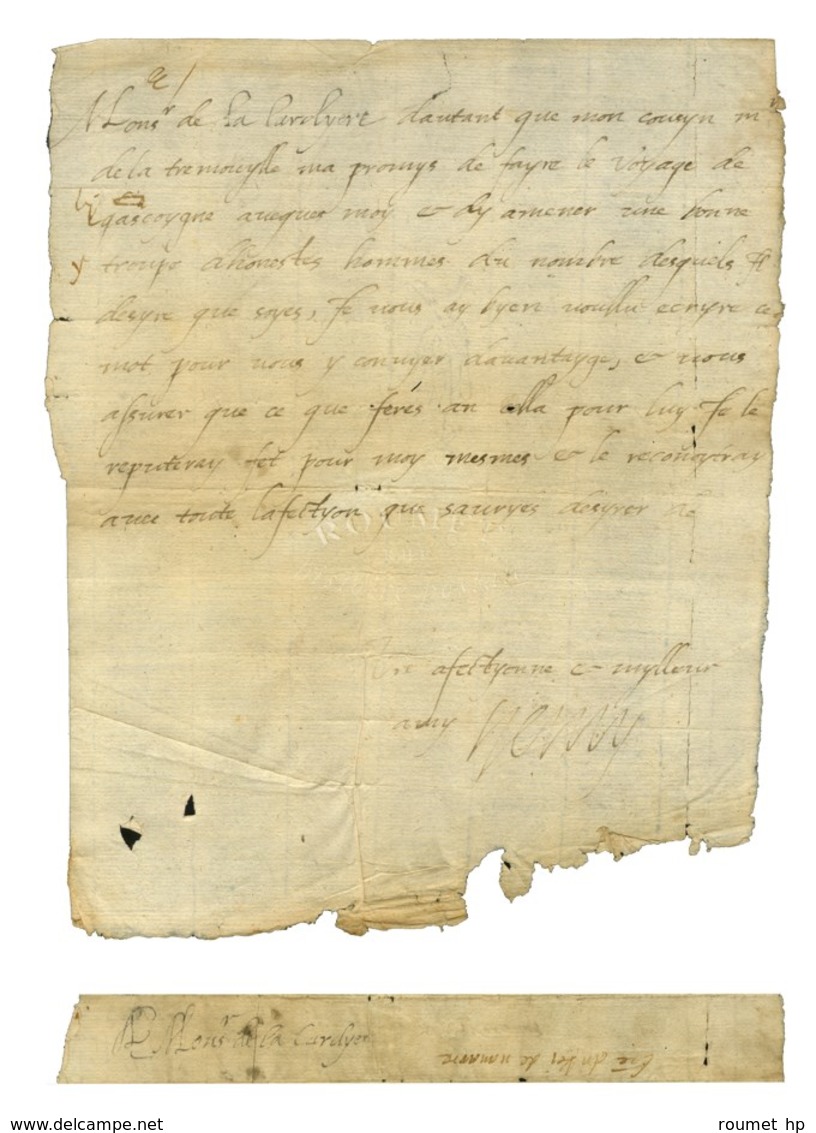 Monsr de la Carelyere dautant que mon cousyn mr
de la tremouylle ma promys de fayre le voyage de
gascoygne aueques moy & dy amener une bonne
troupe dhonestes hommes du nombre desquels Il
desyre que soyes, Je vous ay byen voullu ecryre ce
mot pour vous y convyer davantayge, & vous
assurer que ce que ferés an cella pour luy Je le
reputeray fet pour moy mesmes & le reconoytray
avec toute lafectyon que sauryes desyrer de
afectyonne & mylleur
amy Henry
A Monsr de la
de navarre
roumet hp
delcampe.net